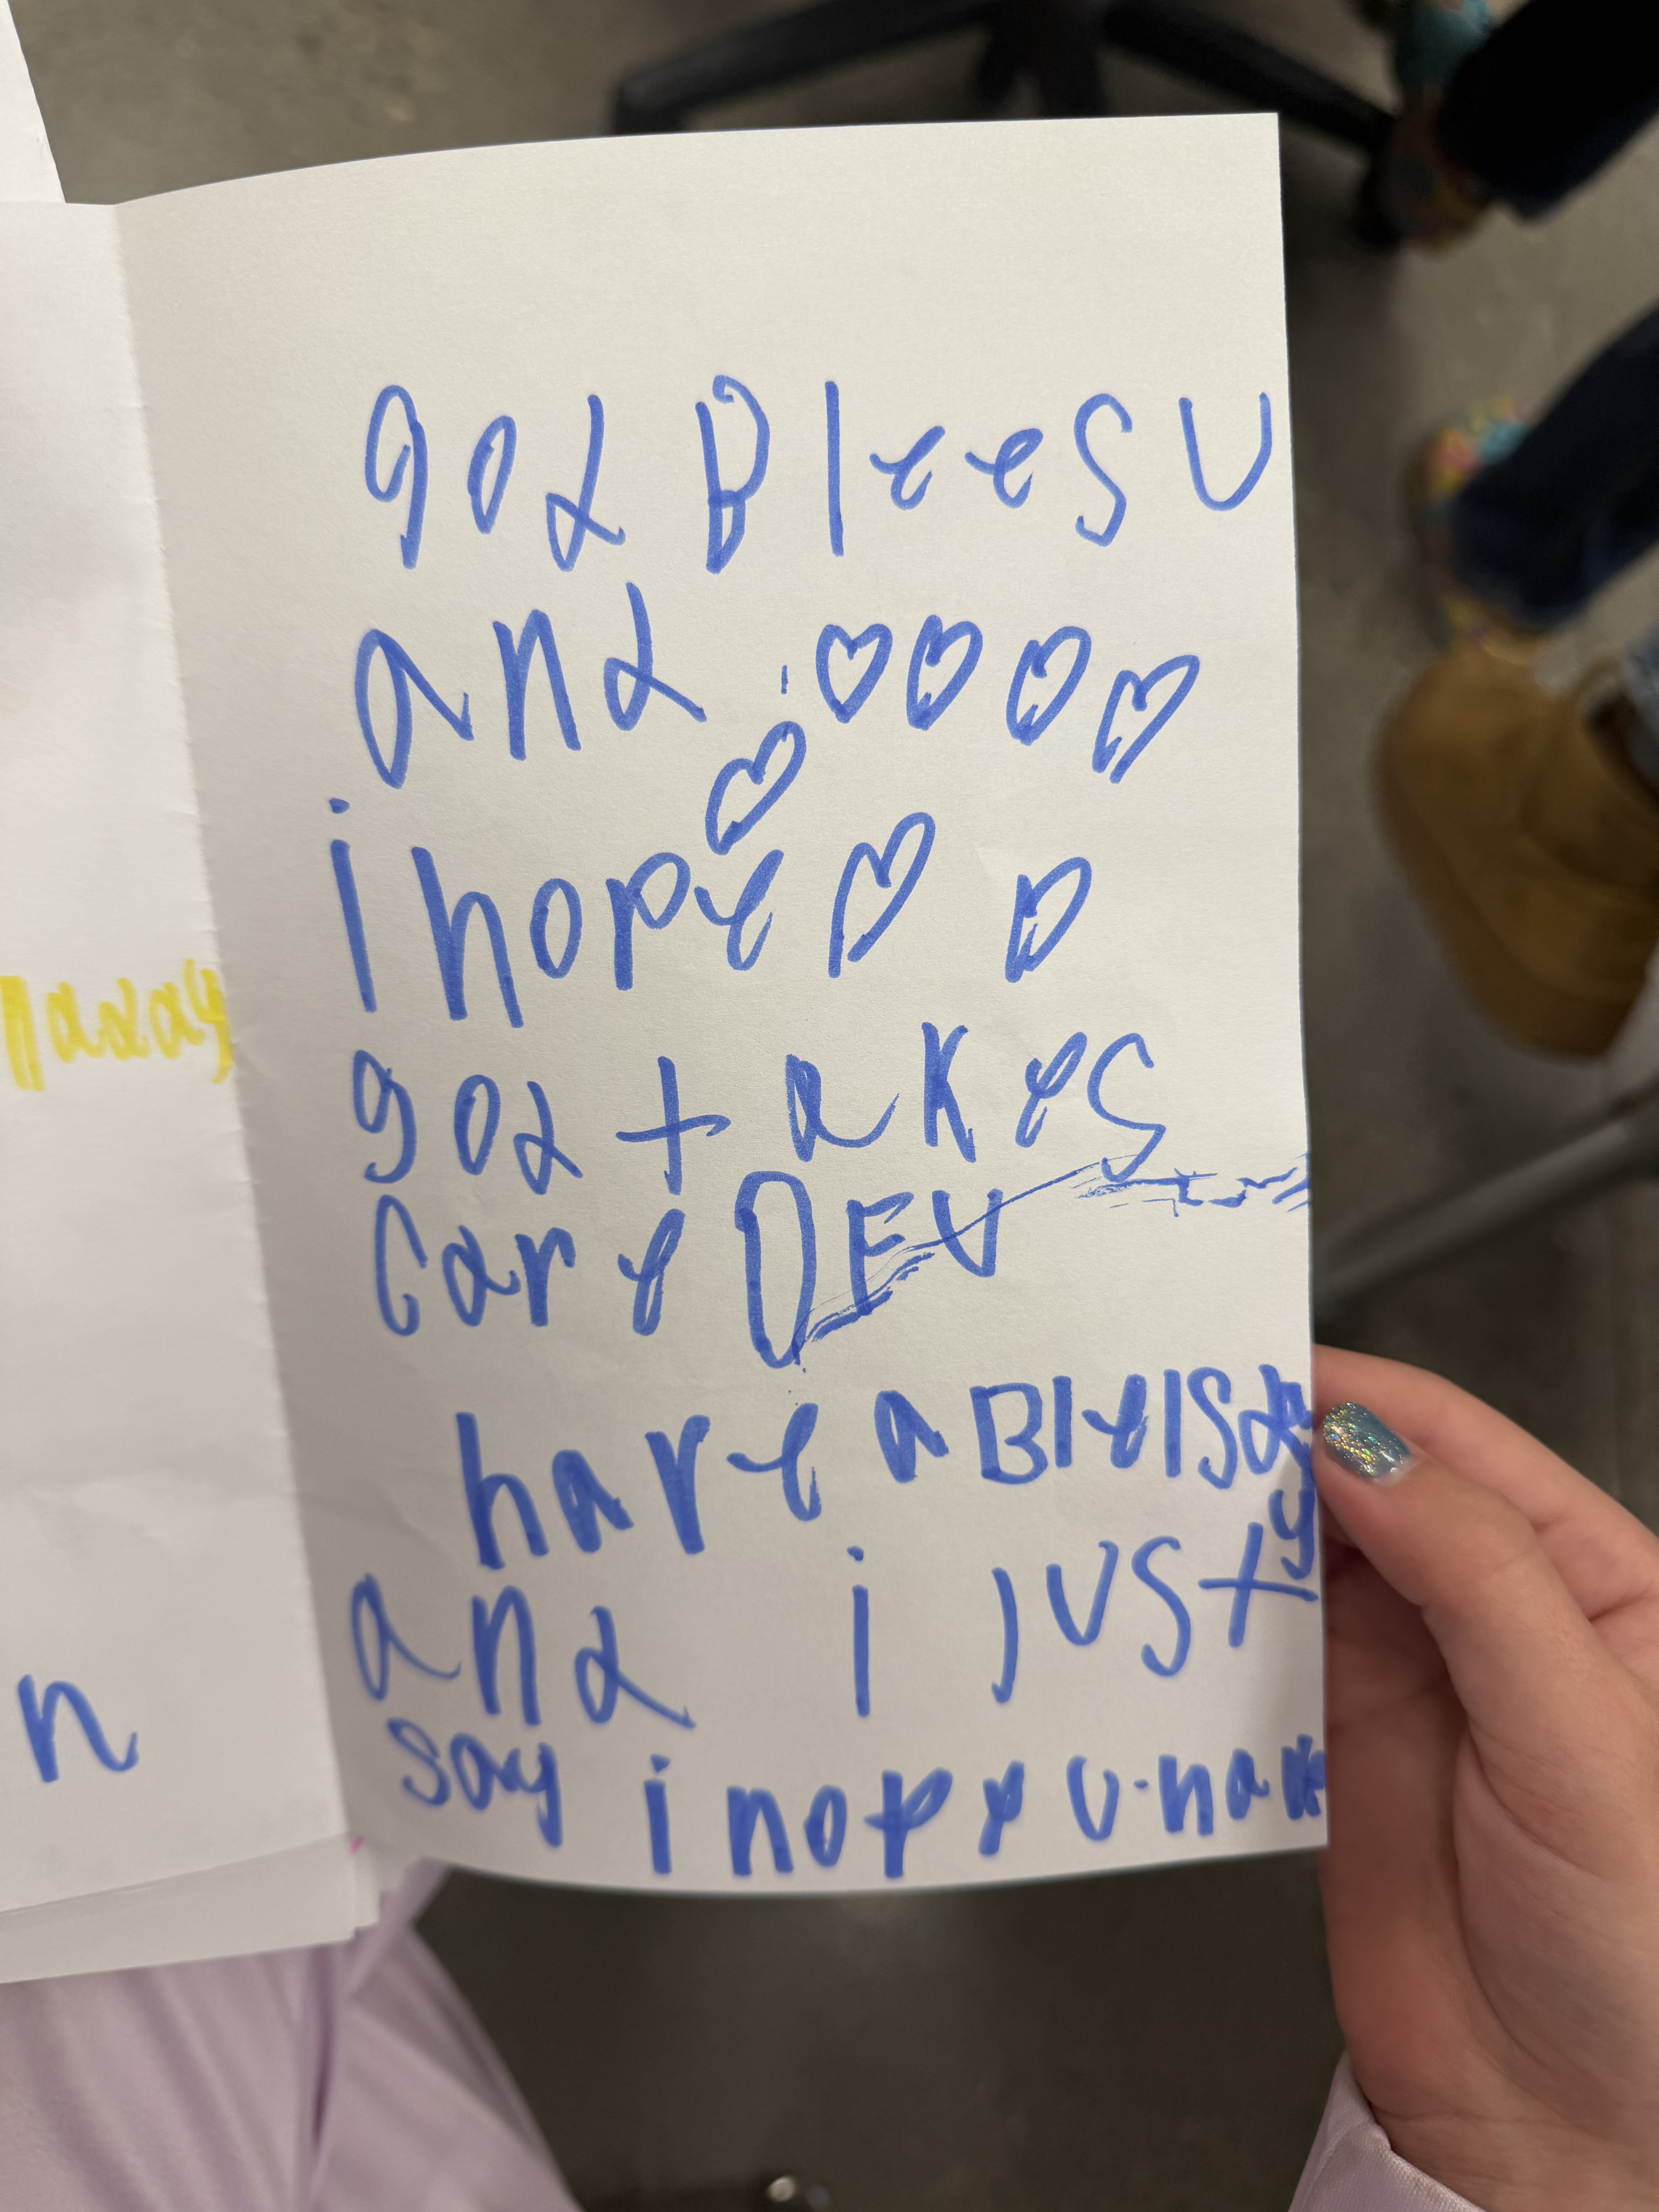 naday
n
god Blees U
and ♡♡♡♡
♡
i hope ♡ ♡
god takes
care OF U
have a Blelsday
and i just
say i hope U have